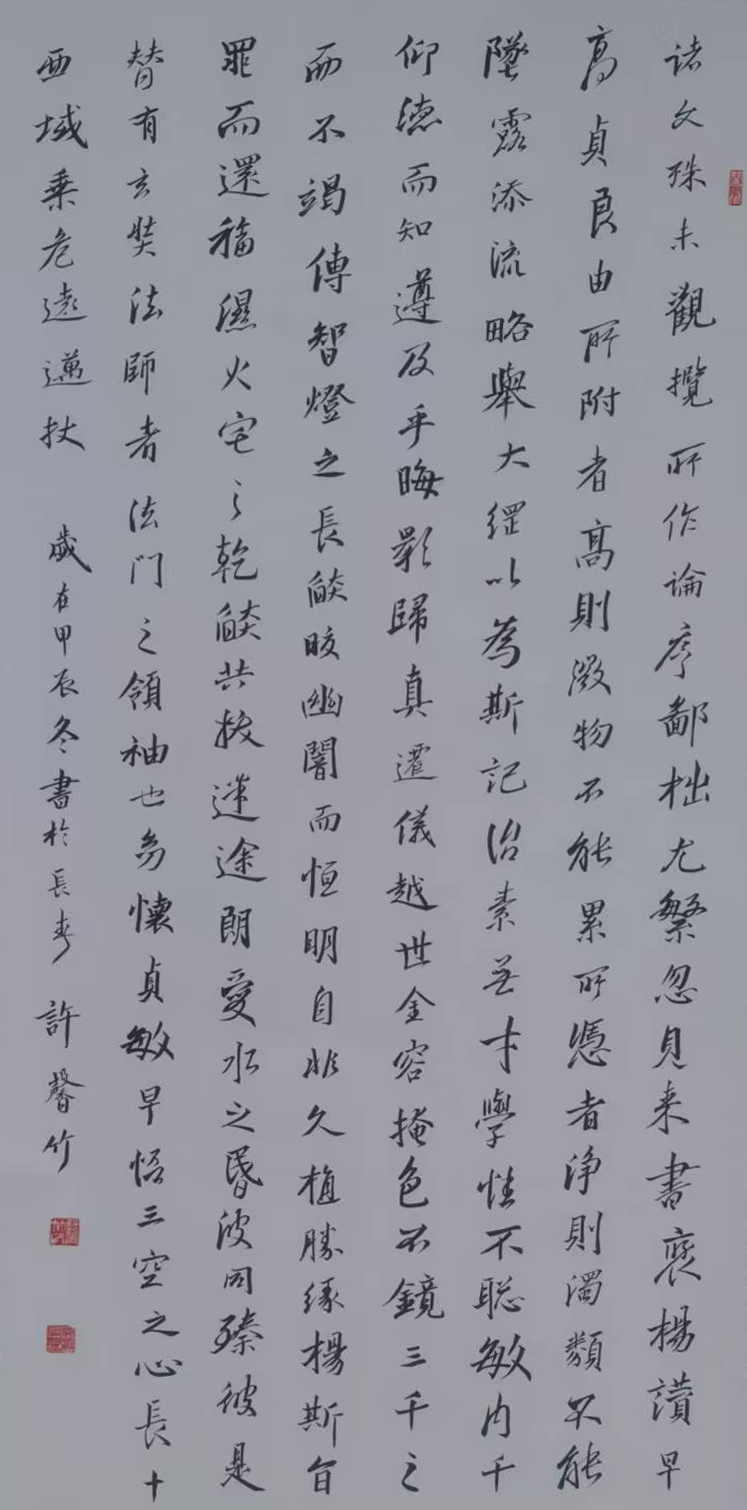 諸文殊未觀攬所作論序鄙拙尤繁忽見来書褒楊讃早
高貞良由所附者高則微物不能累所憑者淨則濁類不能
墜露添流略舉大綱以為斯記治素無才學性不聡敏内千
仰德而知遵及乎晦影歸真遷儀越世金容掩色不鏡三千之
而不竭傳智燈之長燄皎幽闇而恒明自非久植勝緣楊斯旨
罪而還福濕火宅之乾燄共拔迷途朗愛水之昏波同臻彼是
替有玄奘法師者法門之領袖也幼懷貞敏早悟三空之心長十
西域乗危遠邁杖
歲在甲辰冬書於長春 許馨竹